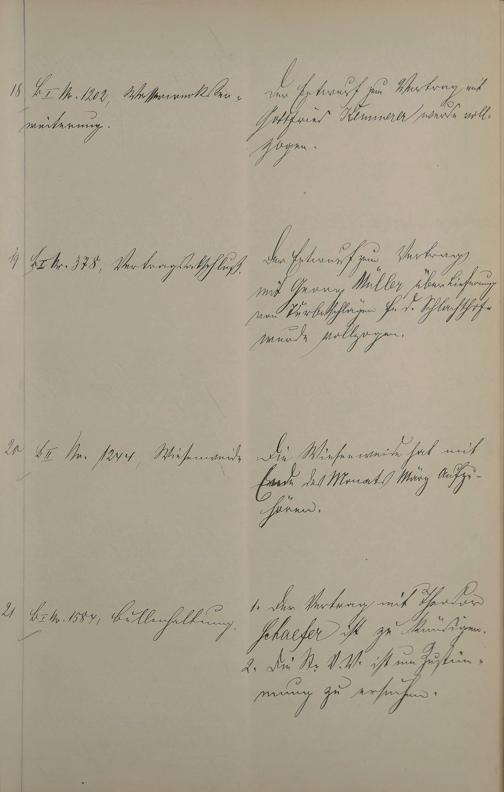 18 B I Nr. 1202, Wasserwerkser=
weiterung.
Der Entwurf zum Vertrag mit
Gottfried Kemmerer wurde voll=
zogen.
19 B I Nr. 378, Vertragsabschluß.
Der Entwurf zum Vertrag
mit Georg Müller über Lieferung
von f. d. Schlachthof
wurde vollzogen.
20 B II Nr. 1244, Wiesenweide
Die Wiesenweide hat mit
Ende des Monats März aufzu=
hören.
21 B I Nr. 1584, Bullenhaltung.
1. Der Vertrag mit Theodor
Schaefer ist zu kündigen.
2. Die St. V. V. ist um Zustim=
mung zu ersuchen.